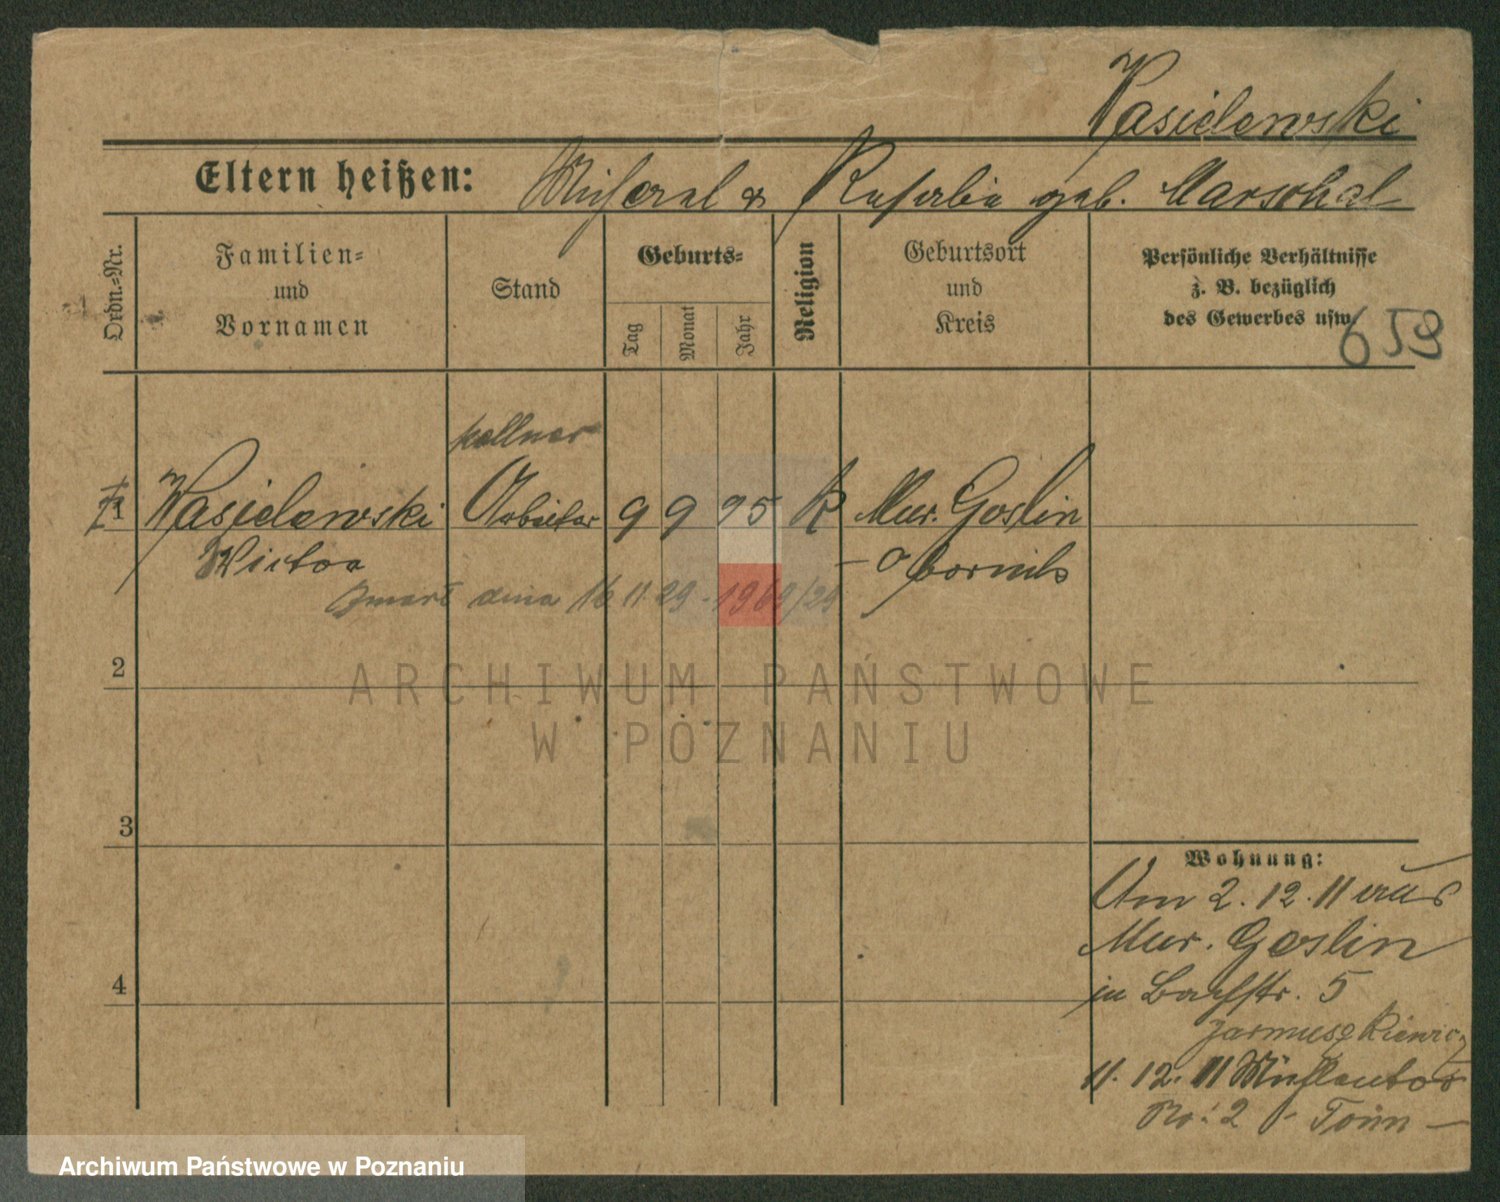 Wasielewski
Eltern heißen: Michael & Rosalie geb. Marschal
Ordn.-Nr.
Familien-
und
Vornamen
Stand
Geburts-
Tag
Monat
Jahr
Religion
Geburtsort
und
Kreis
Persönliche Verhältnisse
z. B. bezüglich
des Gewerbes usw.
659
Kellner
1 Wasielewski Arbeiter 9 9 95 K Mur. Goslin
Victor - Obornik
Zmarł dnia 16 11 29 - 1969/29
2
3
4
Wohnung:
Am 2. 12. 11 aus
Mur. Goslin
in Bachstr. 5
11. 12. 11 Mühlentor
No. 2
ARCHIWUM PAŃSTWOWE
W POZNANIU
Archiwum Państwowe w Poznaniu